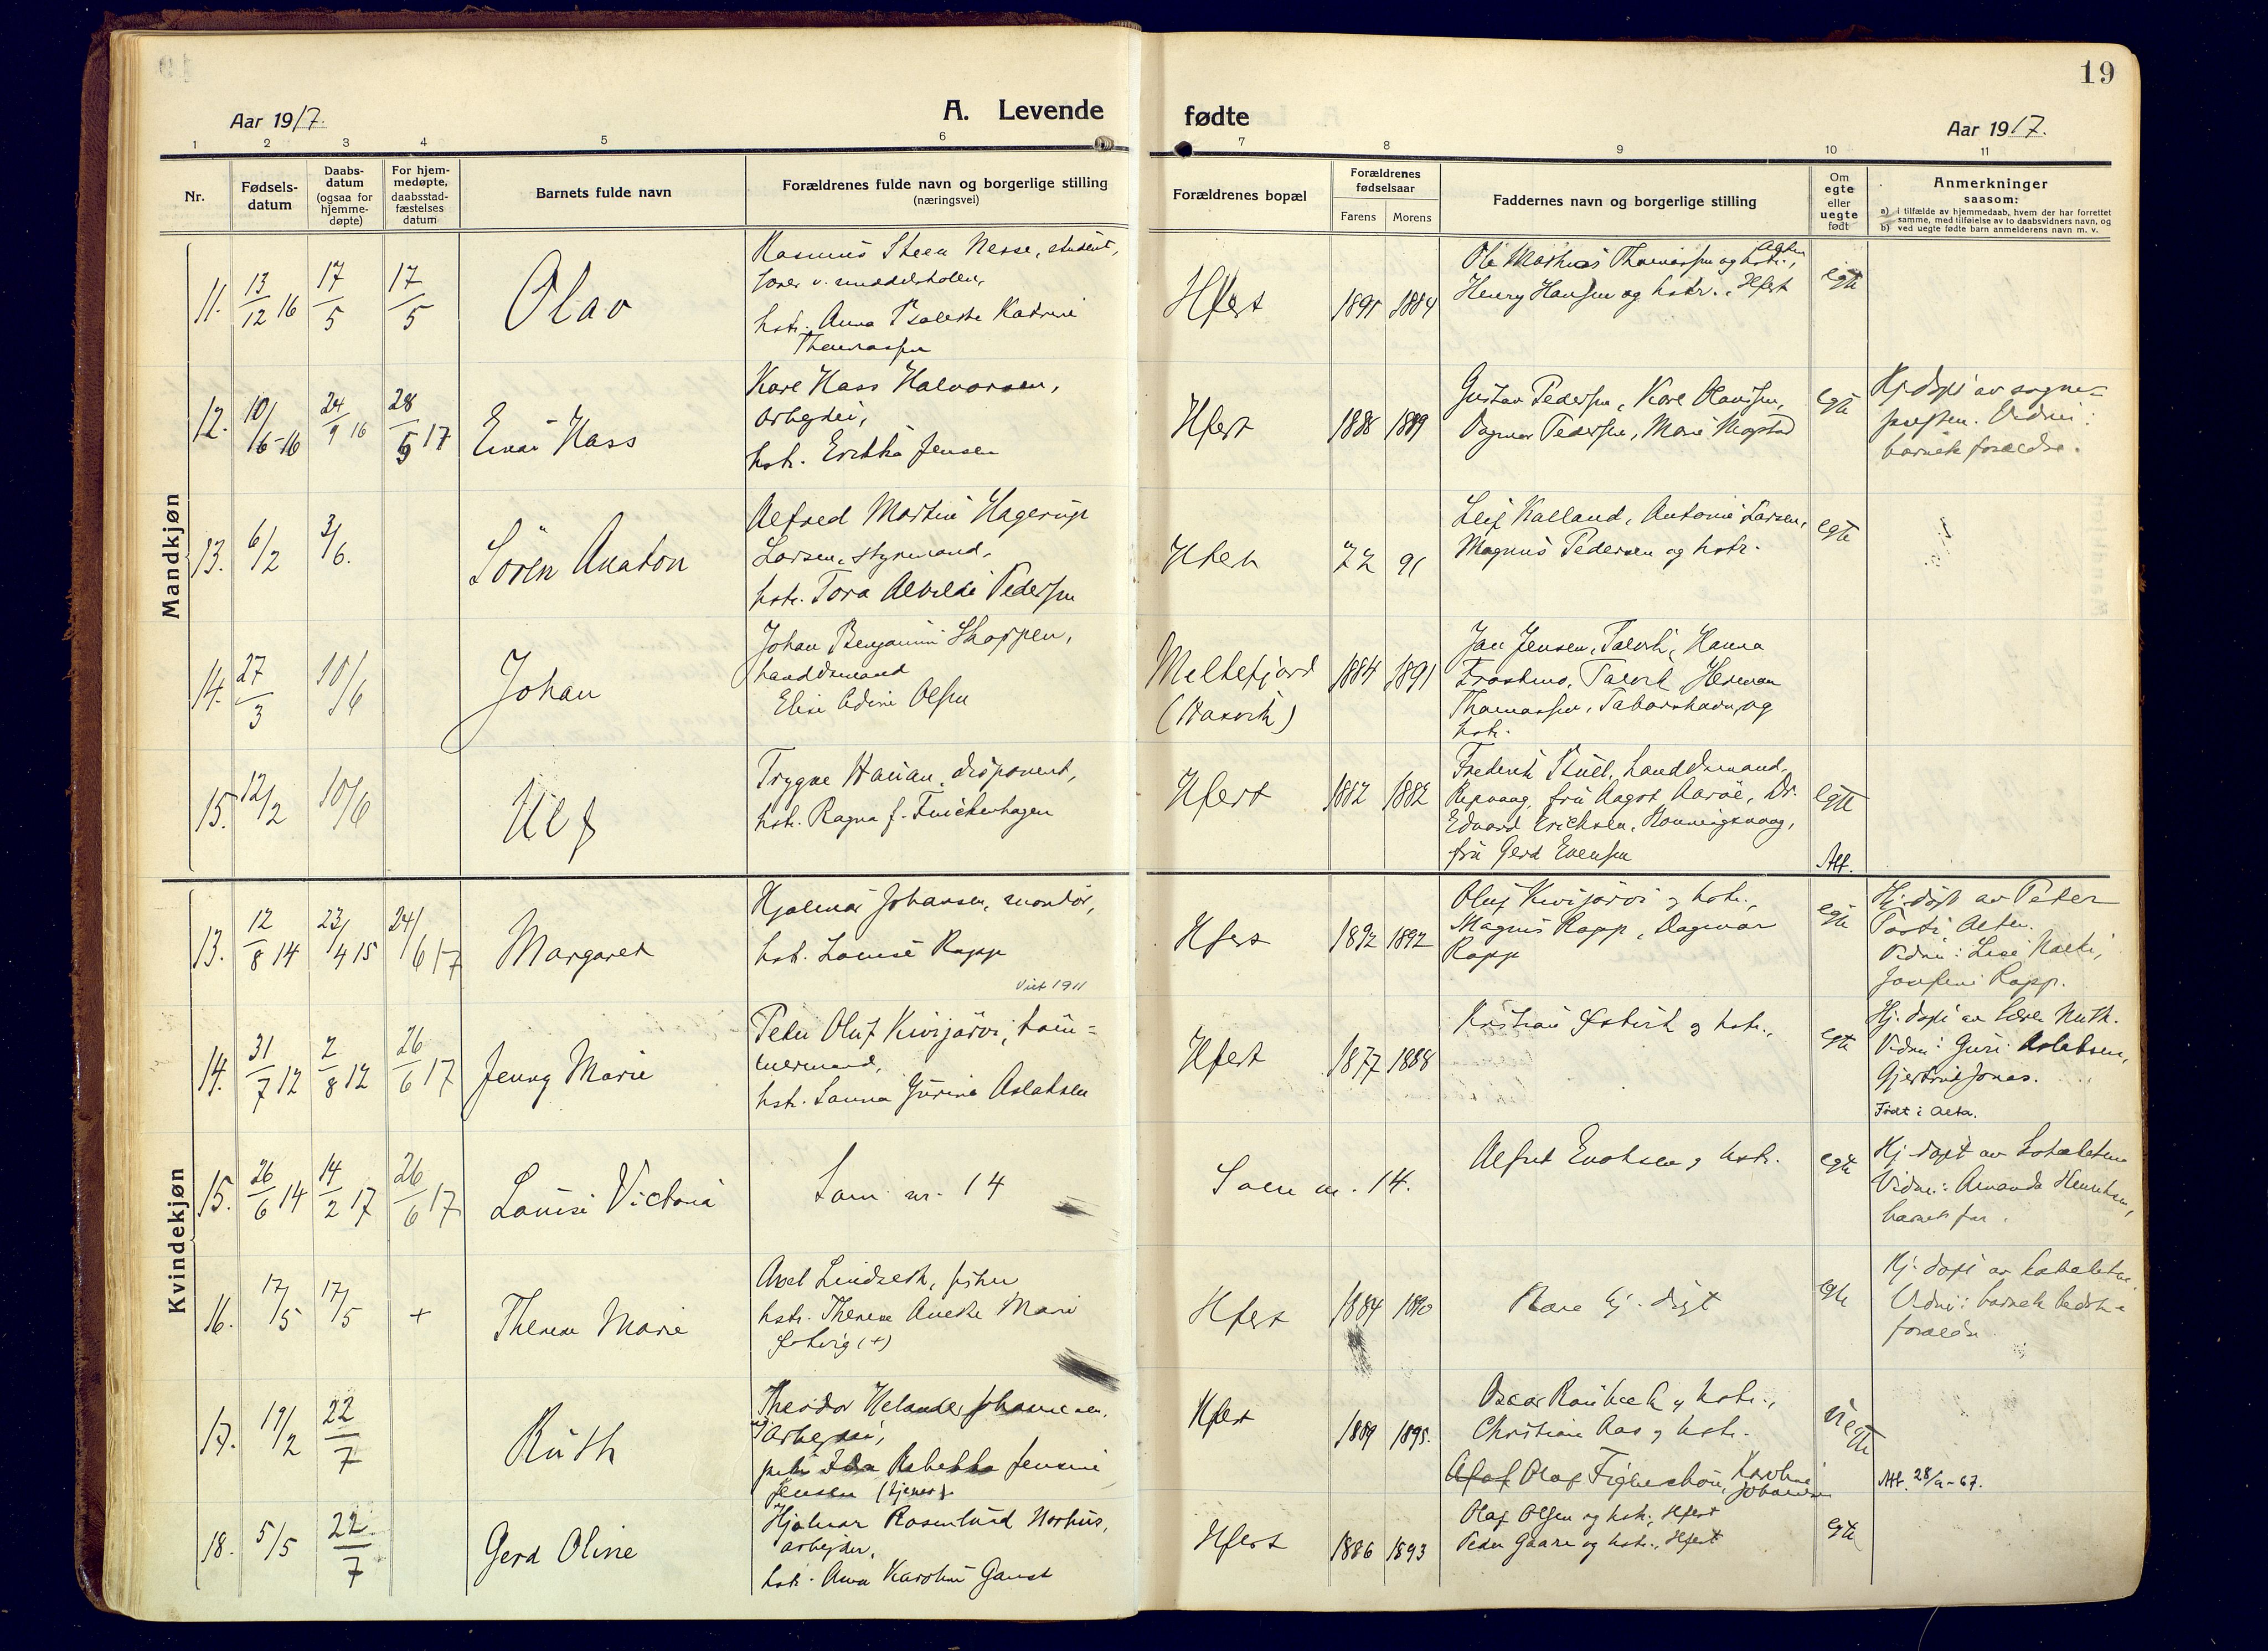 19
Aar 1917.
A. Levende
fødte
Aar 1917.
1 2 3 4 5 6 7 8 9 10 11
Nr.
Fødsels-
datum
Daabs-
datum
(ogsaa for
hjemme-
døpte)
For hjem-
medøpte,
daabsstad-
fæstelses
datum
Barnets fulde navn
Forældrenes fulde navn og borgerlige stilling
(næringsvei)
Forældrenes bopæl
Forældrenes
fødselsaar
Farens Morens
Faddernes navn og borgerlige stilling
Om
egte
eller
uegte
født
Anmerkninger
saasom:
a) i tilfælde av hjemmedaab, hvem der har forrettet
samme, med tilføielse av to daabsvidners navn, og
b) ved uegte fødte barn anmelderens navn m. v.
Mandkjøn
11. 13/12 16 17/5 17/5 Olav
Rasmus Steen Nesse, student,
hstr. Anna Katrine
Thomassen
Hfest 1891 1884
Ole Mathias Thomassen og hstr.,
Henry Hansen og hstr., Hfest
egte
12. 10/6-16 24/9 16 28/5 17 Einar Hass
Kare Hass Halvorsen,
arbeyder,
hstr. Erikka Jensen
Hfest 1888 1889
Gustav Pedersen, Kare Olaussen,
Dagmar Pedersen, Marie Mogstad
egte
Hj. døpt av sogne=
presten. Vidner:
barnets forældre.
13. 6/2 3/6. Sören Anaton
Alfred Martin Hagerup
Larsen, styrmand,
hstr. Tora Alvilde Pedersen
Hfest 72 91
Leif Kalland, Antonie Larsen,
Magnus Pedersen og hstr.
egte
14. 27/3 10/6 Johan
Johan Benjamin Skoppen,
handelsmand
Elise Edine Olsen
Meltefjord
(Hasvik)
1884 1891
Jan Jensen, Talvik, Hanna
Talvik, Herman
Thomassen, og
hstr.
15. 12/2 10/6 Ulf
Trygve Hauan, disponent,
hstr. Ragna f. Finckenhagen
Hfest 1882 1882
Frederik Bull, handelsmand,
Repvaag, fru Aagot Aarøe, Dr.
Edvard Erichsen, Honningsvaag,
fru Gerd Evensen
egte
Att.
Kvindekjøn
13. 12/8 14 23/4 15 24/6 17 Margaret
Hjalmar Johansen, montør,
hstr. Louise Rapp
Viet 1911
Hfest 1892 1892
Oluf Kivijärvi og hstr.,
Magnus Rapp, Dagmar
Rapp
egte
Hj. døpt av Peter
Alten.
Vidner: Lise
Rapp.
14. 31/7 12 2/8 12 26/6 17 Jenny Marie
Peter Oluf Kivijärvi, tøm=
mermand,
hstr. Sanna Gurine Aslaksen
Hfest 1877 1888
Kristian Østvik og hstr.,
egte
Hj. døpt av lærer Muth.
Vidner: Guri Aslaksen,
Gjertrud Jonas.
Født i Alta.
15. 26/6 14 14/2 17 26/6 17 Louise Victoria
Som nr. 14
Som nr. 14.
Alfred Enoksen og hstr.
egte
Hj. døpt av
Vidner: Amanda Henriksen,
barnets far.
16. 17/5 17/5 + Therese Marie
Axel Lindseth, fisker
hstr. Therese Anette Marie
Solvig (+)
Hfest 1884 1890
Bare hj. døpt
egte
Hj. døpt av
Vidner: barnets bedste=
forældre.
17. 19/2 22/7 Ruth
Theodor Helander Johannesen,
arbeyder,
pike Ida Rebekka Jensine
Jensen (tjener).
Hfest
1889 1895.
Oscar Rønbeck og hstr.,
Christian Aas og hstr.
Olaf Karoline
Johansen
uegte
Att. 28/9-67.
18. 5/5 22/7 Gerd Oline
Hjalmar Rosenlund Norhus,
arbejder,
hstr. Anna Karoline Ganst
Hfest 1886 1893
Olaf Olsen og hstr., Hfest
Peder Gaare og hstr., Hfest
egte